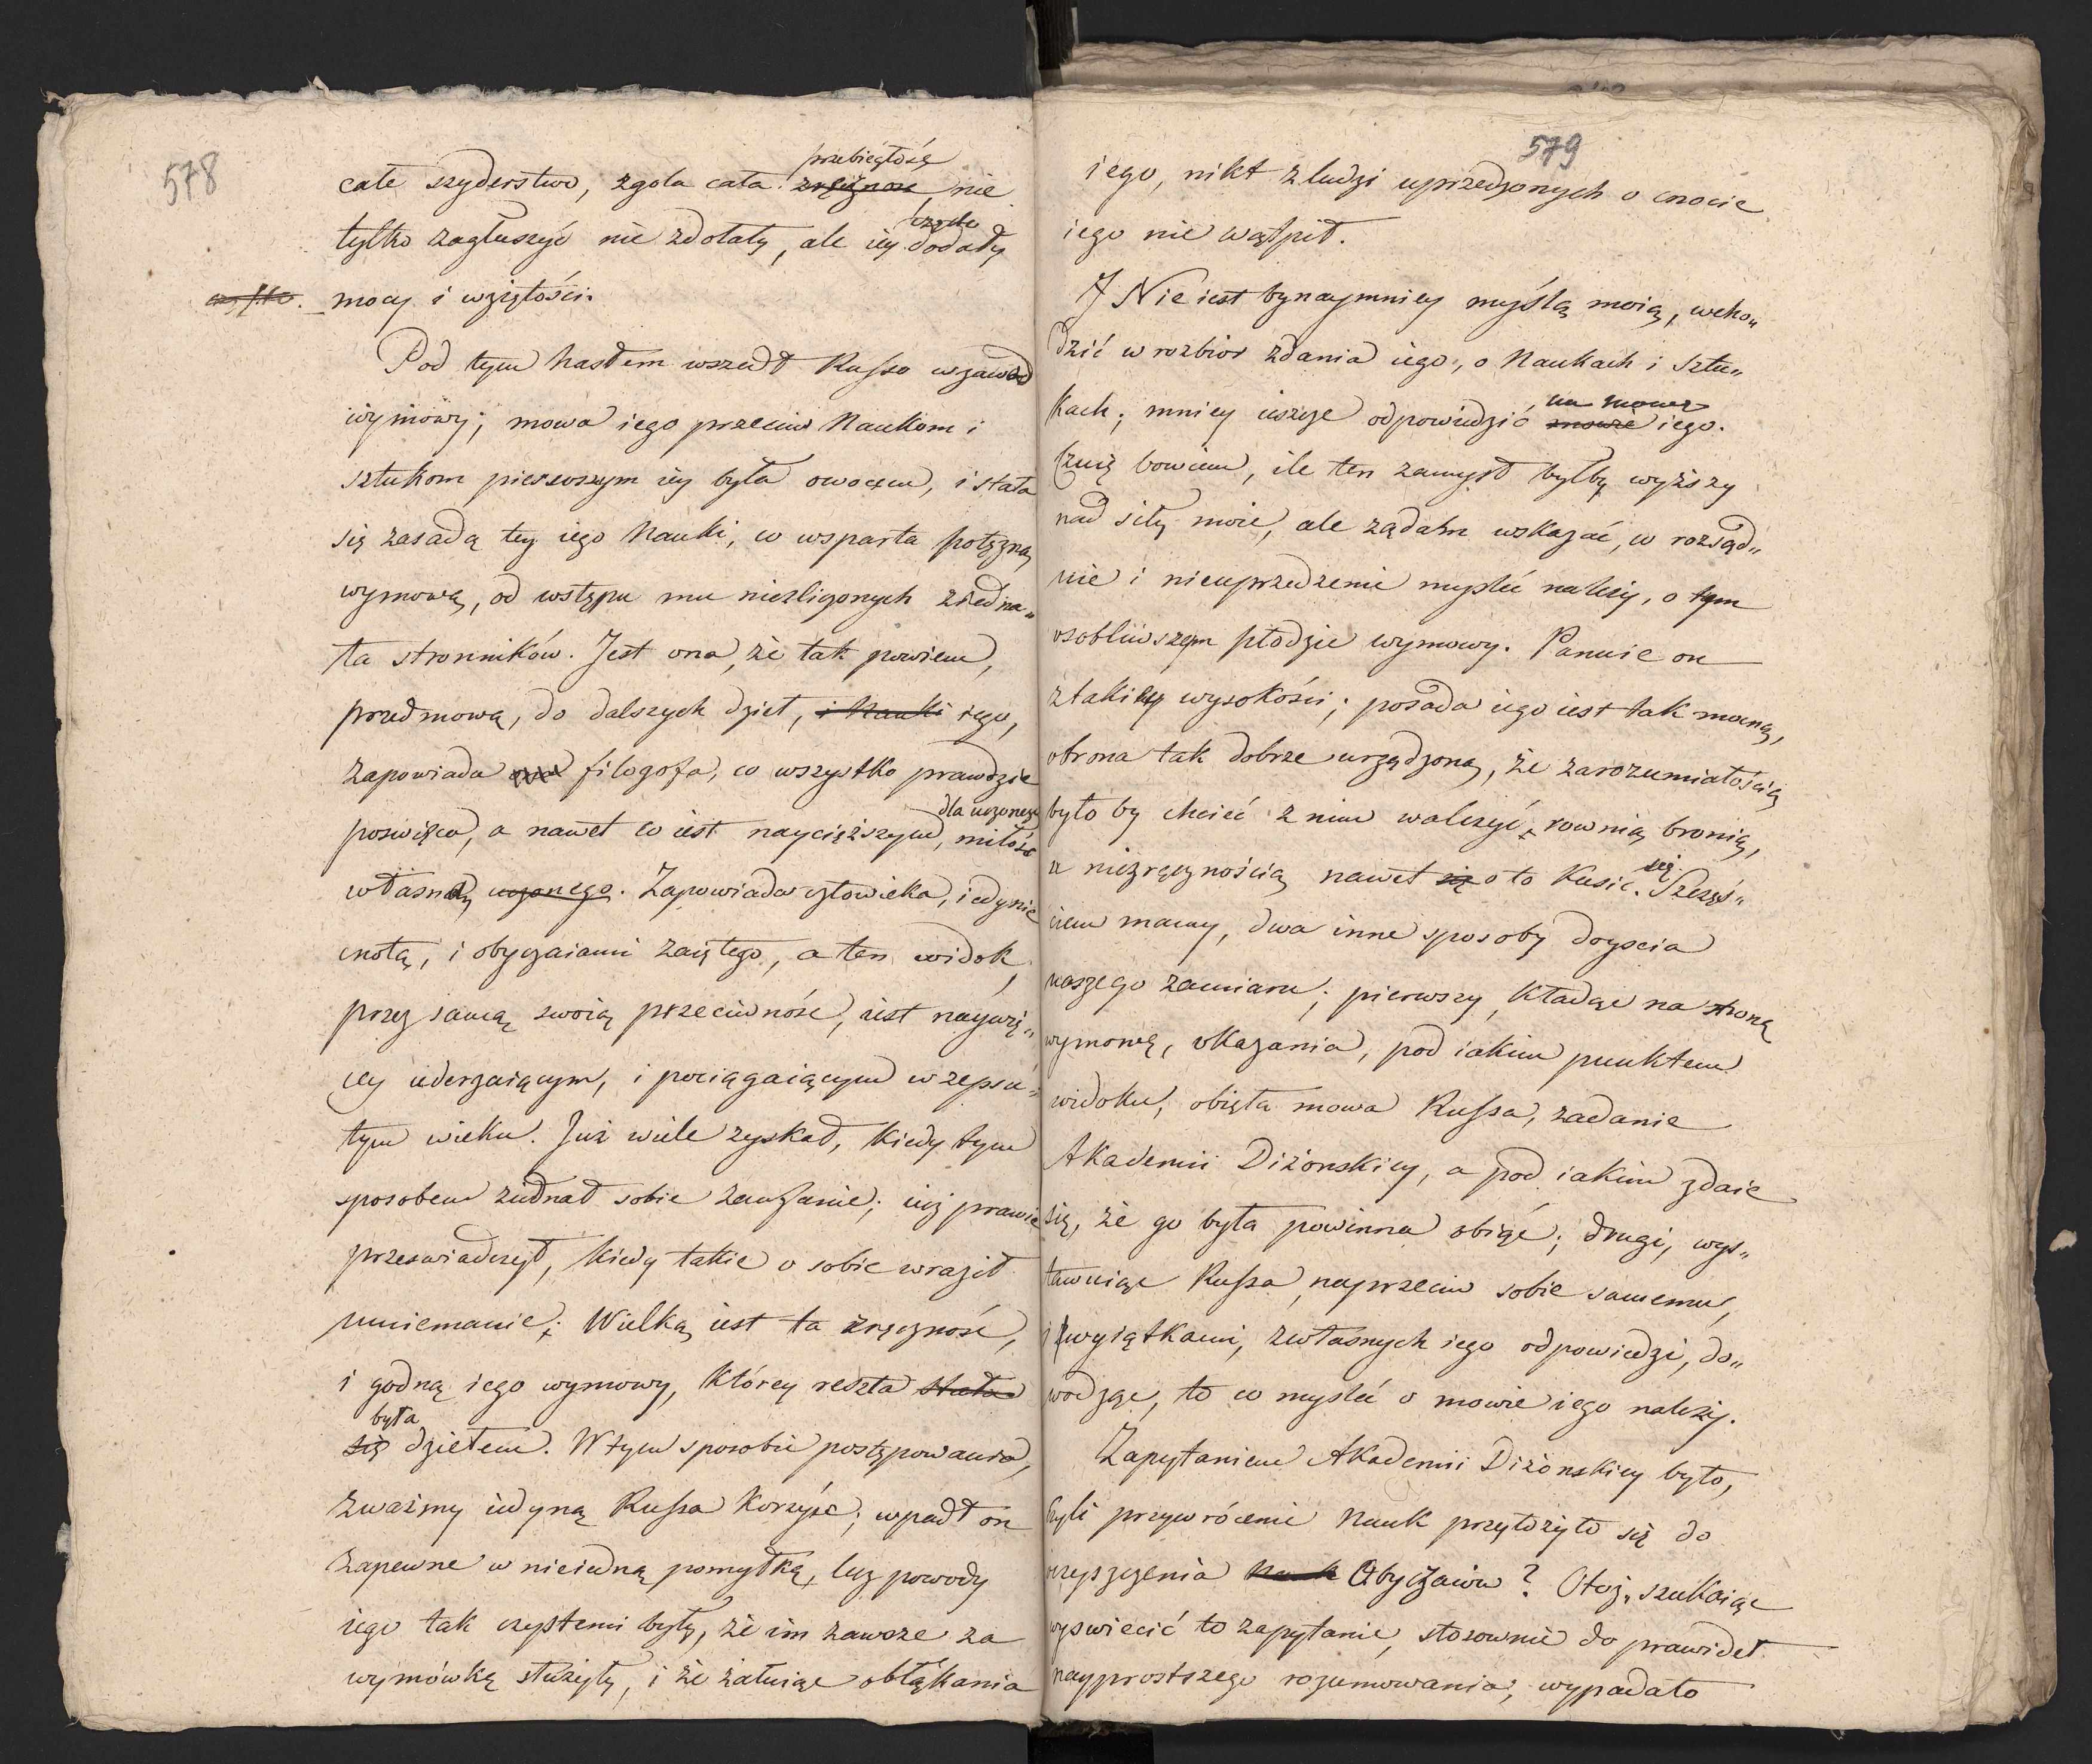 578
całe szyderstwo, zgoła cała przebiegłość zręczność, nie
tylko zagłuszyć nie zdołały, ale iey dodały
mocy i wziętości.
Pod tym hasłem wszedł Russo w zawod
wymowy; mowa iego przeciw Naukom i
sztukom pierwszym iey była owocem, i stała
się zasadą tey iego Nauki, co wsparta potężną
wymową, od wstępu mu niezliczonych ziedna„
ła stronników. Jest ona, że tak powiem,
przedmową, do dalszych dzieł, i Nauki iego,
zapowiada filozofa, co wszystko prawdzie
poswięca, a nawet co iest naycięższym, dla uczonego miłość
własną uczonego. Zapowiada człowieka, iedynie
cnotą, i obyczaiami zaiętego, a ten widok,
przez samą swoią przeciwność, iest naywię„
cey uderzaiącym, i pociągaiącym w zepsu„
tym wieku. Już wiele zyskał, kiedy tym
sposobem ziednał sobie zaufanie; iuż prawie
przeswiadczył, kiedy takie o sobie wraził
mniemanie; Wielką iest ta zręczność,
i godną iego wymowy, którey reszta stała
się była dziełem. W tym sposobie postępowania,
zważmy iedyną Russa korzyść; wpadł on
zapewne w nieiedną pomyłkę, lecz powody
iego tak czystemi były, że im zawsze za
wymówkę służyły, i że żałuiąc obłąkania
579
iego, nikt z ludzi uprzedzonych o cnocie
iego nie wątpił.
Nie iest bynaymniey myślą moią, wcho„
dzić w rozbior zdania iego, o Naukach i Sztu„
kach; mniey ieszcze odpowiedzić na mowę mowie iego.
Czuię bowiem, ile ten zamysł byłby wyższy
nad siły moie, ale żądałem wskazać, co rozsąd„
nie i nieuprzedzenie mysleć należy, o tym
osobliwszym płodzie wymowy. Panuie on
z takiey wysokości; posada iego iest tak mocną,
obrona tak dobrze urządzoną, że zarozumiałością
było by chcieć z nim walczyć rownią bronią,
a niezręcznością nawet się o to kusić się. Szczęś„
ciem mamy, dwa inne sposoby doyscia
naszego zamiaru; pierwszy, kładąc na stronę
wymowę, okazania, pod iakim punktem
widoku, obięła mowa Russa, zadanie
Akademii Diżonskiey, a pod iakim zdaie
się, że go była powinna obiąć; drugi, wys„
tawuiąc Russa, naprzeciw sobie samemu,
i wyiątkami, z własnych iego odpowiedzi, do„
wodząc, to co mysleć o mowie iego należy.
Zapytaniem Akademii Diżonskiey było,
czyli przywrócenie Nauk przyłożyło się do
oczyszczenia Nauk Obyczaiow? Otoż, szukaiąc
wyswiecić to zapytanie, stosownie do prawideł
nayprostszego rozumowania, wypadało